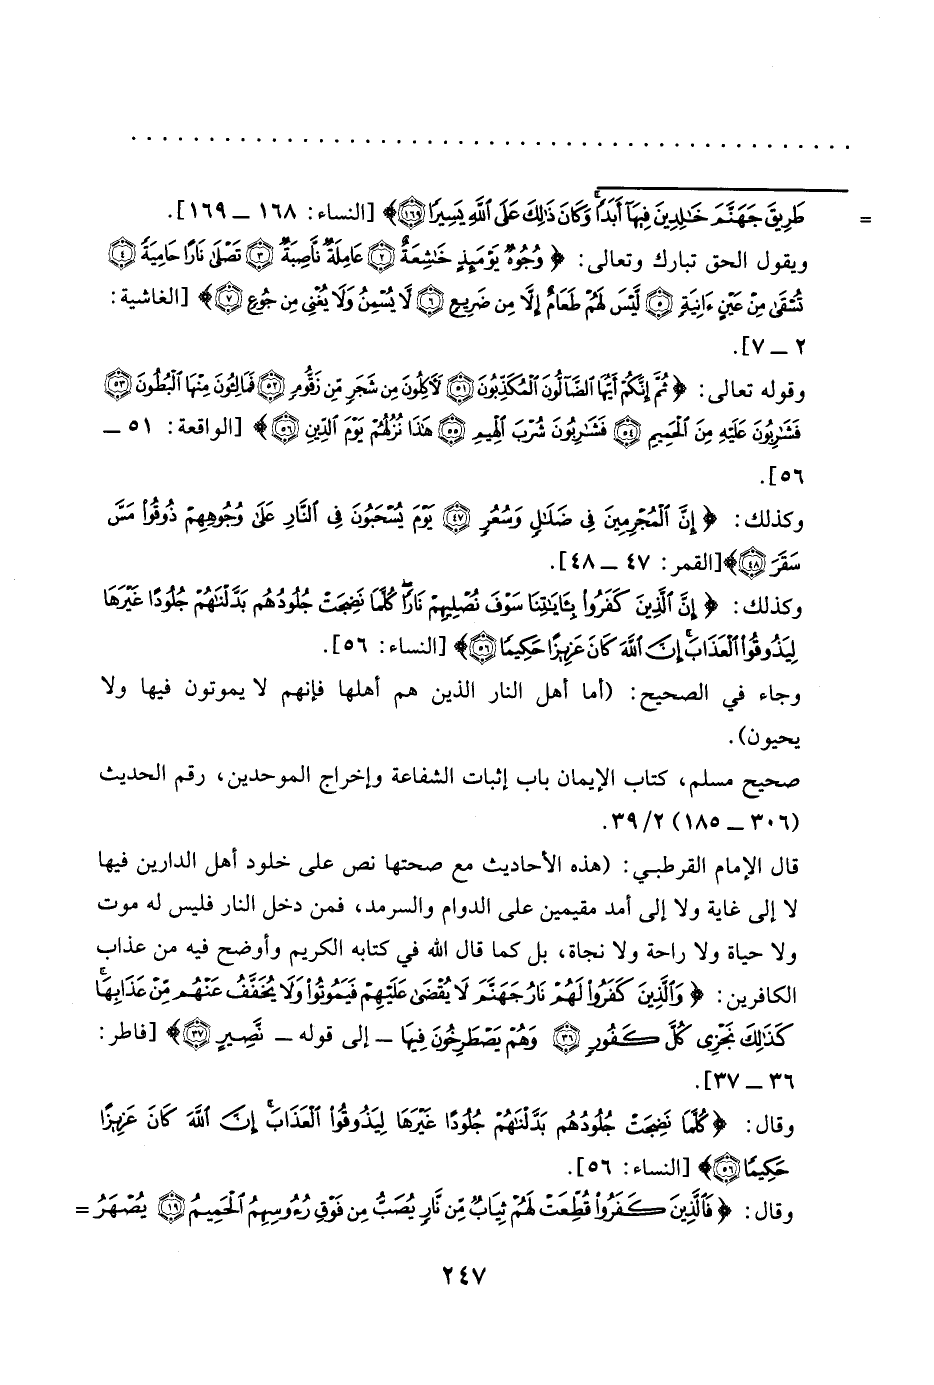 . . . . . . . . . . . . . . . . . . . . . . . . . . . . . . . . . . . . . . . .
= طَرِيقَ جَهَنَّمَ خَٰلِدِينَ فِيهَآ أَبَدٗاۚ وَكَانَ ذَٰلِكَ عَلَى ٱللَّهِ يَسِيرٗا ١٦٩﴾ [النساء: ١٦٨ ــ ١٦٩].
ويقول الحق تبارك وتعالى: ﴿وُجُوهٞ يَوۡمَئِذٍ خَٰشِعَةٌ ٢ عَامِلَةٞ نَّاصِبَةٞ ٣ تَصۡلَىٰ نَارًا حَامِيَةٗ ٤
تُسۡقَىٰ مِنۡ عَيۡنٍ ءَانِيَةٖ ٥ لَّيۡسَ لَهُمۡ طَعَامٌ إِلَّا مِن ضَرِيعٖ ٦ لَّا يُسۡمِنُ وَلَا يُغۡنِي مِن جُوعٖ ٧﴾ [الغاشية:
٢ ــ ٧].
وقوله تعالى: ﴿ثُمَّ إِنَّكُمۡ أَيُّهَا ٱلضَّآلُّونَ ٱلۡمُكَذِّبُونَ ٥١ لَأٓكِلُونَ مِن شَجَرٖ مِّن زَقُّومٖ ٥٢ فَمَالِـُٔونَ مِنۡهَا ٱلۡبُطُونَ ٥٣
فَشَٰرِبُونَ عَلَيۡهِ مِنَ ٱلۡحَمِيمِ ٥٤ فَشَٰرِبُونَ شُرۡبَ ٱلۡهِيمِ ٥٥ هَٰذَا نُزُلُهُمۡ يَوۡمَ ٱلدِّينِ ٥٦﴾ [الواقعة: ٥١ ــ
٥٦].
وكذلك: ﴿إِنَّ ٱلۡمُجۡرِمِينَ فِي ضَلَٰلٖ وَسُعُرٖ ٤٧ يَوۡمَ يُسۡحَبُونَ فِي ٱلنَّارِ عَلَىٰ وُجُوهِهِمۡ ذُوقُواْ مَسَّ
سَقَرَ ٤٨﴾ [القمر: ٤٧ ــ ٤٨].
وكذلك: ﴿إِنَّ ٱلَّذِينَ كَفَرُواْ بِـَٔايَٰتِنَا سَوۡفَ نُصۡلِيهِمۡ نَارٗاۖ كُلَّمَا نَضِجَتۡ جُلُودُهُم بَدَّلۡنَٰهُمۡ جُلُودًا غَيۡرَهَا
لِيَذُوقُواْ ٱلۡعَذَابَۗ إِنَّ ٱللَّهَ كَانَ عَزِيزًا حَكِيمٗا ٥٦﴾ [النساء: ٥٦].
وجاء في الصحيح: (أما أهل النار الذين هم أهلها فإنهم لا يموتون فيها ولا
يحيون).
صحيح مسلم، كتاب الإيمان باب إثبات الشفاعة وإخراج الموحدين، رقم الحديث
(٣٠٦ ــ ١٨٥) ٣٩/٢.
قال الإمام القرطبي: (هذه الأحاديث مع صحتها نص على خلود أهل الدارين فيها
لا إلى غاية ولا إلى أمد مقيمين على الدوام والسرمد، فمن دخل النار فليس له موت
ولا حياة ولا راحة ولا نجاة، بل كما قال الله في كتابه الكريم وأوضح فيه من عذاب
الكافرين: ﴿وَٱلَّذِينَ كَفَرُواْ لَهُمۡ نَارُ جَهَنَّمَ لَا يُقۡضَىٰ عَلَيۡهِمۡ فَيَمُوتُواْ وَلَا يُخَفَّفُ عَنۡهُم مِّنۡ عَذَابِهَاۚ
كَذَٰلِكَ نَجۡزِي كُلَّ كَفُورٖ ٣٦ وَهُمۡ يَصۡطَرِخُونَ فِيهَا ــ إلى قوله ــ نَّصِيرٍ ٣٧﴾ [فاطر:
٣٦ ــ ٣٧].
وقال: ﴿كُلَّمَا نَضِجَتۡ جُلُودُهُم بَدَّلۡنَٰهُمۡ جُلُودًا غَيۡرَهَا لِيَذُوقُواْ ٱلۡعَذَابَۗ إِنَّ ٱللَّهَ كَانَ عَزِيزًا
حَكِيمٗا ٥٦﴾ [النساء: ٥٦].
وقال: ﴿فَٱلَّذِينَ كَفَرُواْ قُطِّعَتۡ لَهُمۡ ثِيَابٞ مِّن نَّارٖ يُصَبُّ مِن فَوۡقِ رُءُوسِهِمُ ٱلۡحَمِيمُ ١٩ يُصۡهَرُ =
٢٤٧